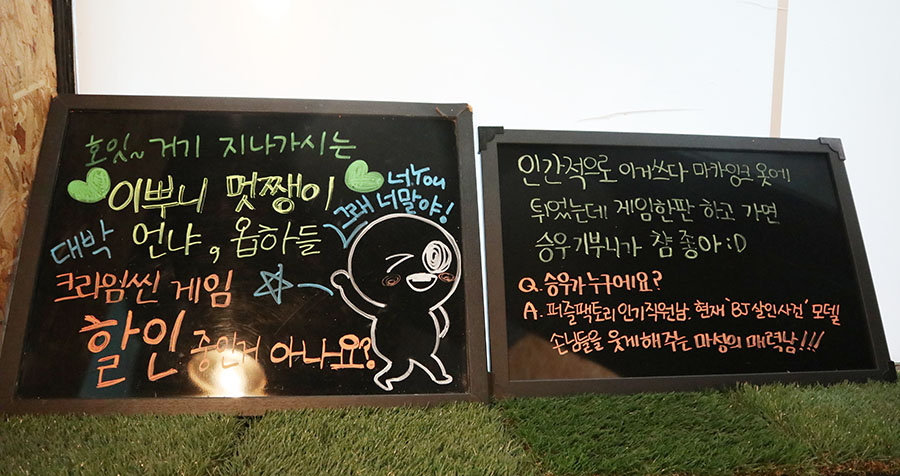 호잇~ 거기 지나가시는
이뿌니 멋쨍이
너.You
그래 너말야!
대박 언냐, 옵하들
크라임씬 게임
할인 중인거 아나요?
인간적으로 이거쓰다 마카잉크 옷에
튀었는데 게임한판 하고 가면
승우 기부니가 챰 좋아 :D
Q. 승우가 누구에요?
A. 퍼즐팩토리 인기직원남. 현재 'BJ 살인사건' 모델
손님들을 웃게해주는 마성의 매력남!!!